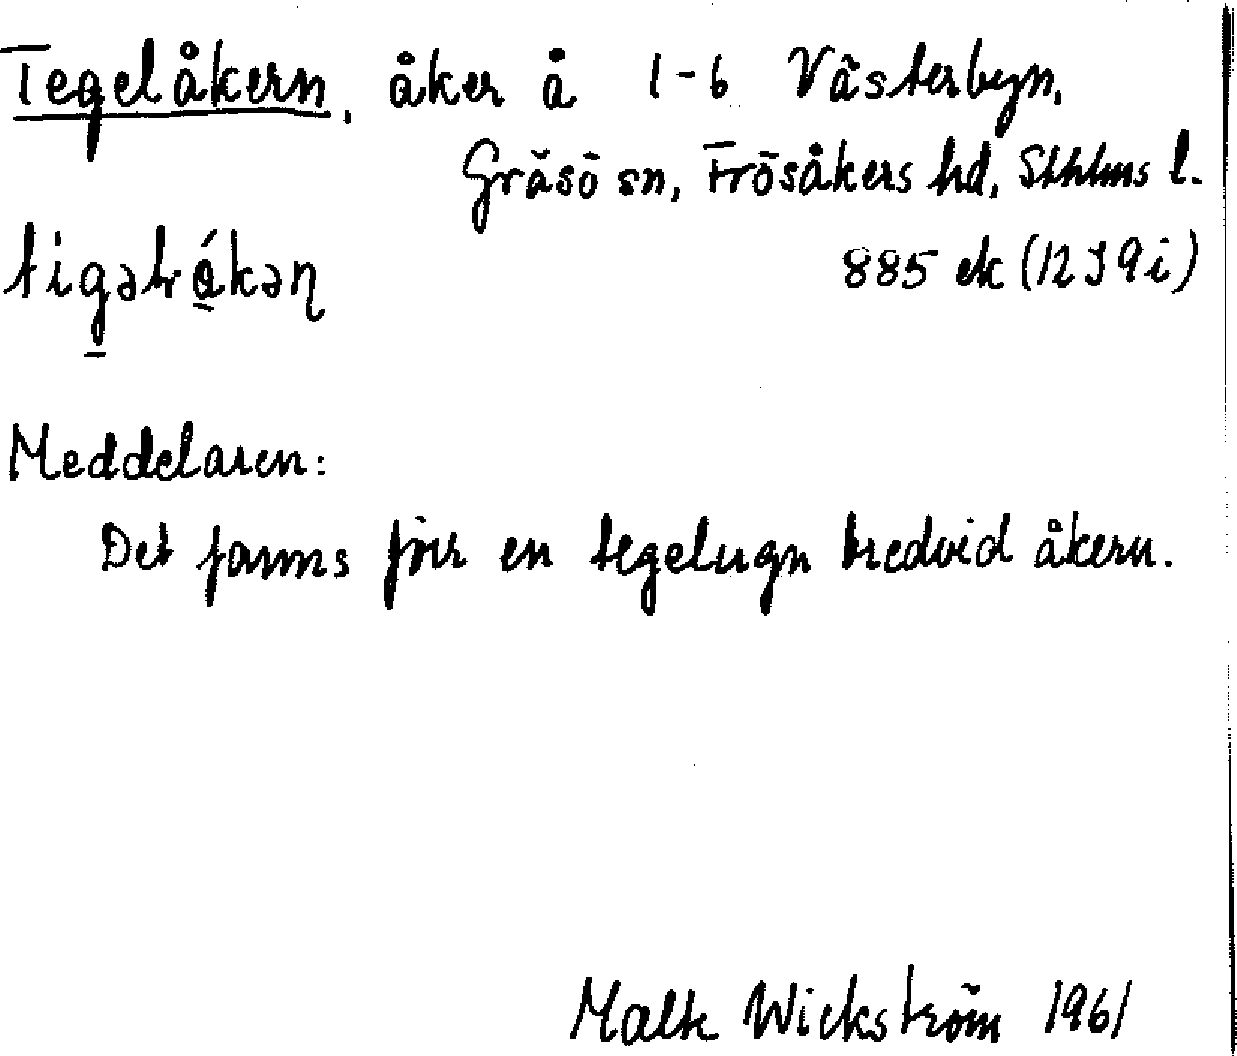 Tegelåkern, åker å 1-6 Västerbyn,
Gräsö sn, Frösåkers hd, Sthlms l.
885 ek (12 I 9 i)
Meddelaren:
Det fanns förr en tegelugn bredvid åkern.
Malte Wickström 1961